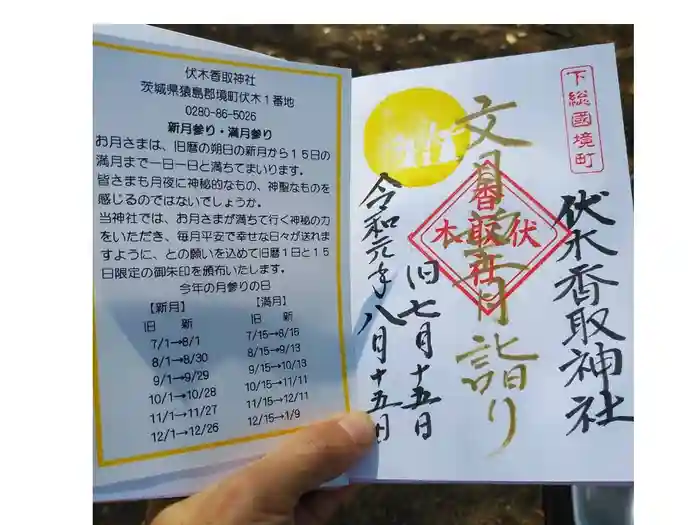 伏木香取神社
茨城県猿島郡境町伏木1番地
0280-86-5026
新月参り・満月参り
お月さまは、旧暦の朔日の新月から15日の
満月まで一日一日と満ちてまいります。
皆さまも月夜に神秘的なもの、神聖なものを
感じるのではないでしょうか。
当神社では、お月さまが満ちて行く神秘の力
をいただき、毎月平安で幸せな日々が送れま
すように、との願いを込めて旧暦1日と15
日限定の御朱印を頒布いたします。
今年の月参りの日
【新月】 【満月】
旧 新 旧 新
7/1→8/1 7/15→8/15
8/1→8/30 8/15→9/13
9/1→9/29 9/15→10/13
10/1→10/28 10/15→11/11
11/1→11/27 11/15→12/11
12/1→12/26 12/15→1/9
下総國境町
伏木香取神社
文月満月詣り
伏木
香取社
旧七月十五日
令和元年八月十五日